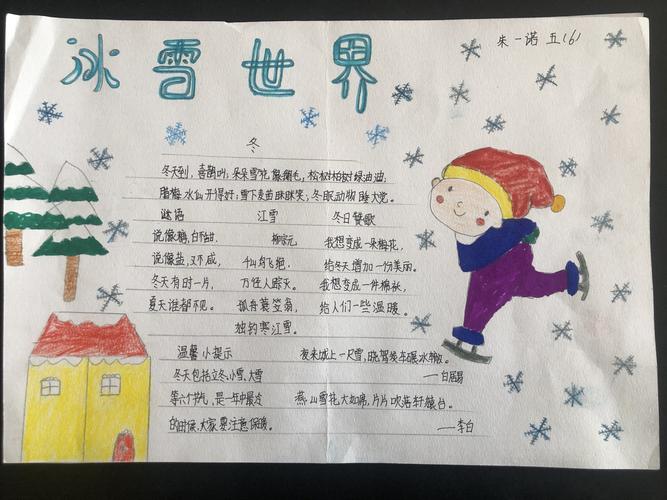 冰雪世界
朱一诺 五(6)
冬
冬天到，喜鹊叫；朵朵雪花像鹅毛，松树柏树绿油油，
腊梅水仙开得好；雪下麦苗眯眯笑；冬眠动物睡大觉。
谜语 江雪 冬日赞歌
说像糖，白不甜， 柳宗元 我想变成一朵梅花，
说像盐，又不咸， 千山鸟飞绝， 给冬天增加一份美丽。
冬天有时一片， 万径人踪灭。 我想变成一件棉袄，
夏天谁都不见。 孤舟蓑笠翁， 给人们一些温暖。
独钓寒江雪。
温馨小提示 夜来城上一尺雪，晓驾炭车碾冰辙。
冬天包括立冬，小雪，大雪 —白居易
等六个节气，是一年中最冷 燕山雪花大如席，片片吹落轩辕台。
的时候，大家要注意保暖。 —李白